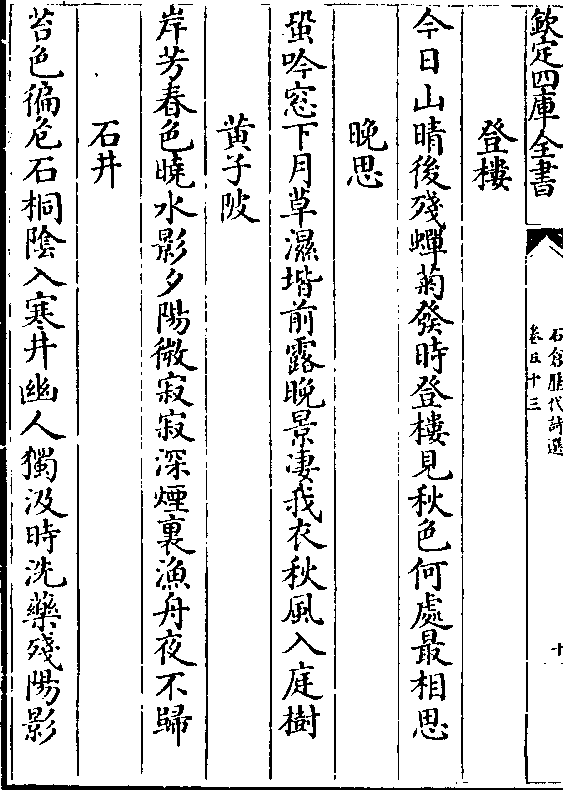 欽定四庫全書
石倉歴代詩選
卷五十三
十
登樓
今日山晴後殘蟬菊發時登樓見秋色何處最相思
晚思
蛩吟窓下月草濕堦前露晚景凄我衣秋風入庭樹
黄子陂
岸芳春色曉水影夕陽微寂寂深煙裏漁舟夜不歸
石井
苔色徧危石桐陰入寒井幽人獨汲時洗藥殘陽影